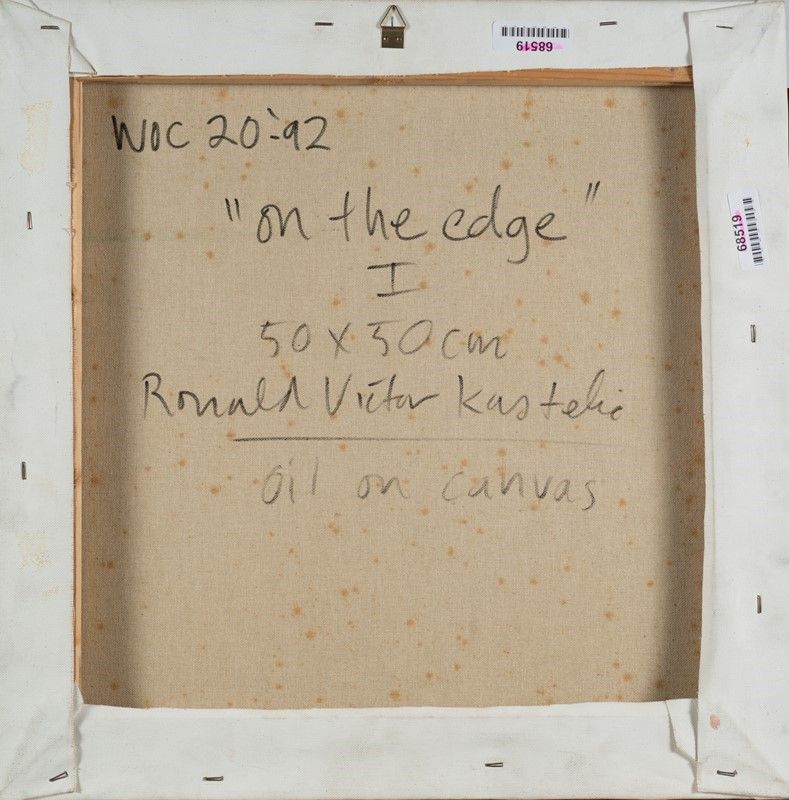 68519
WOC 20:92
68519
"on the edge"
I
50 x 50 cm
Ronald Victor Kastelic
oil on canvas